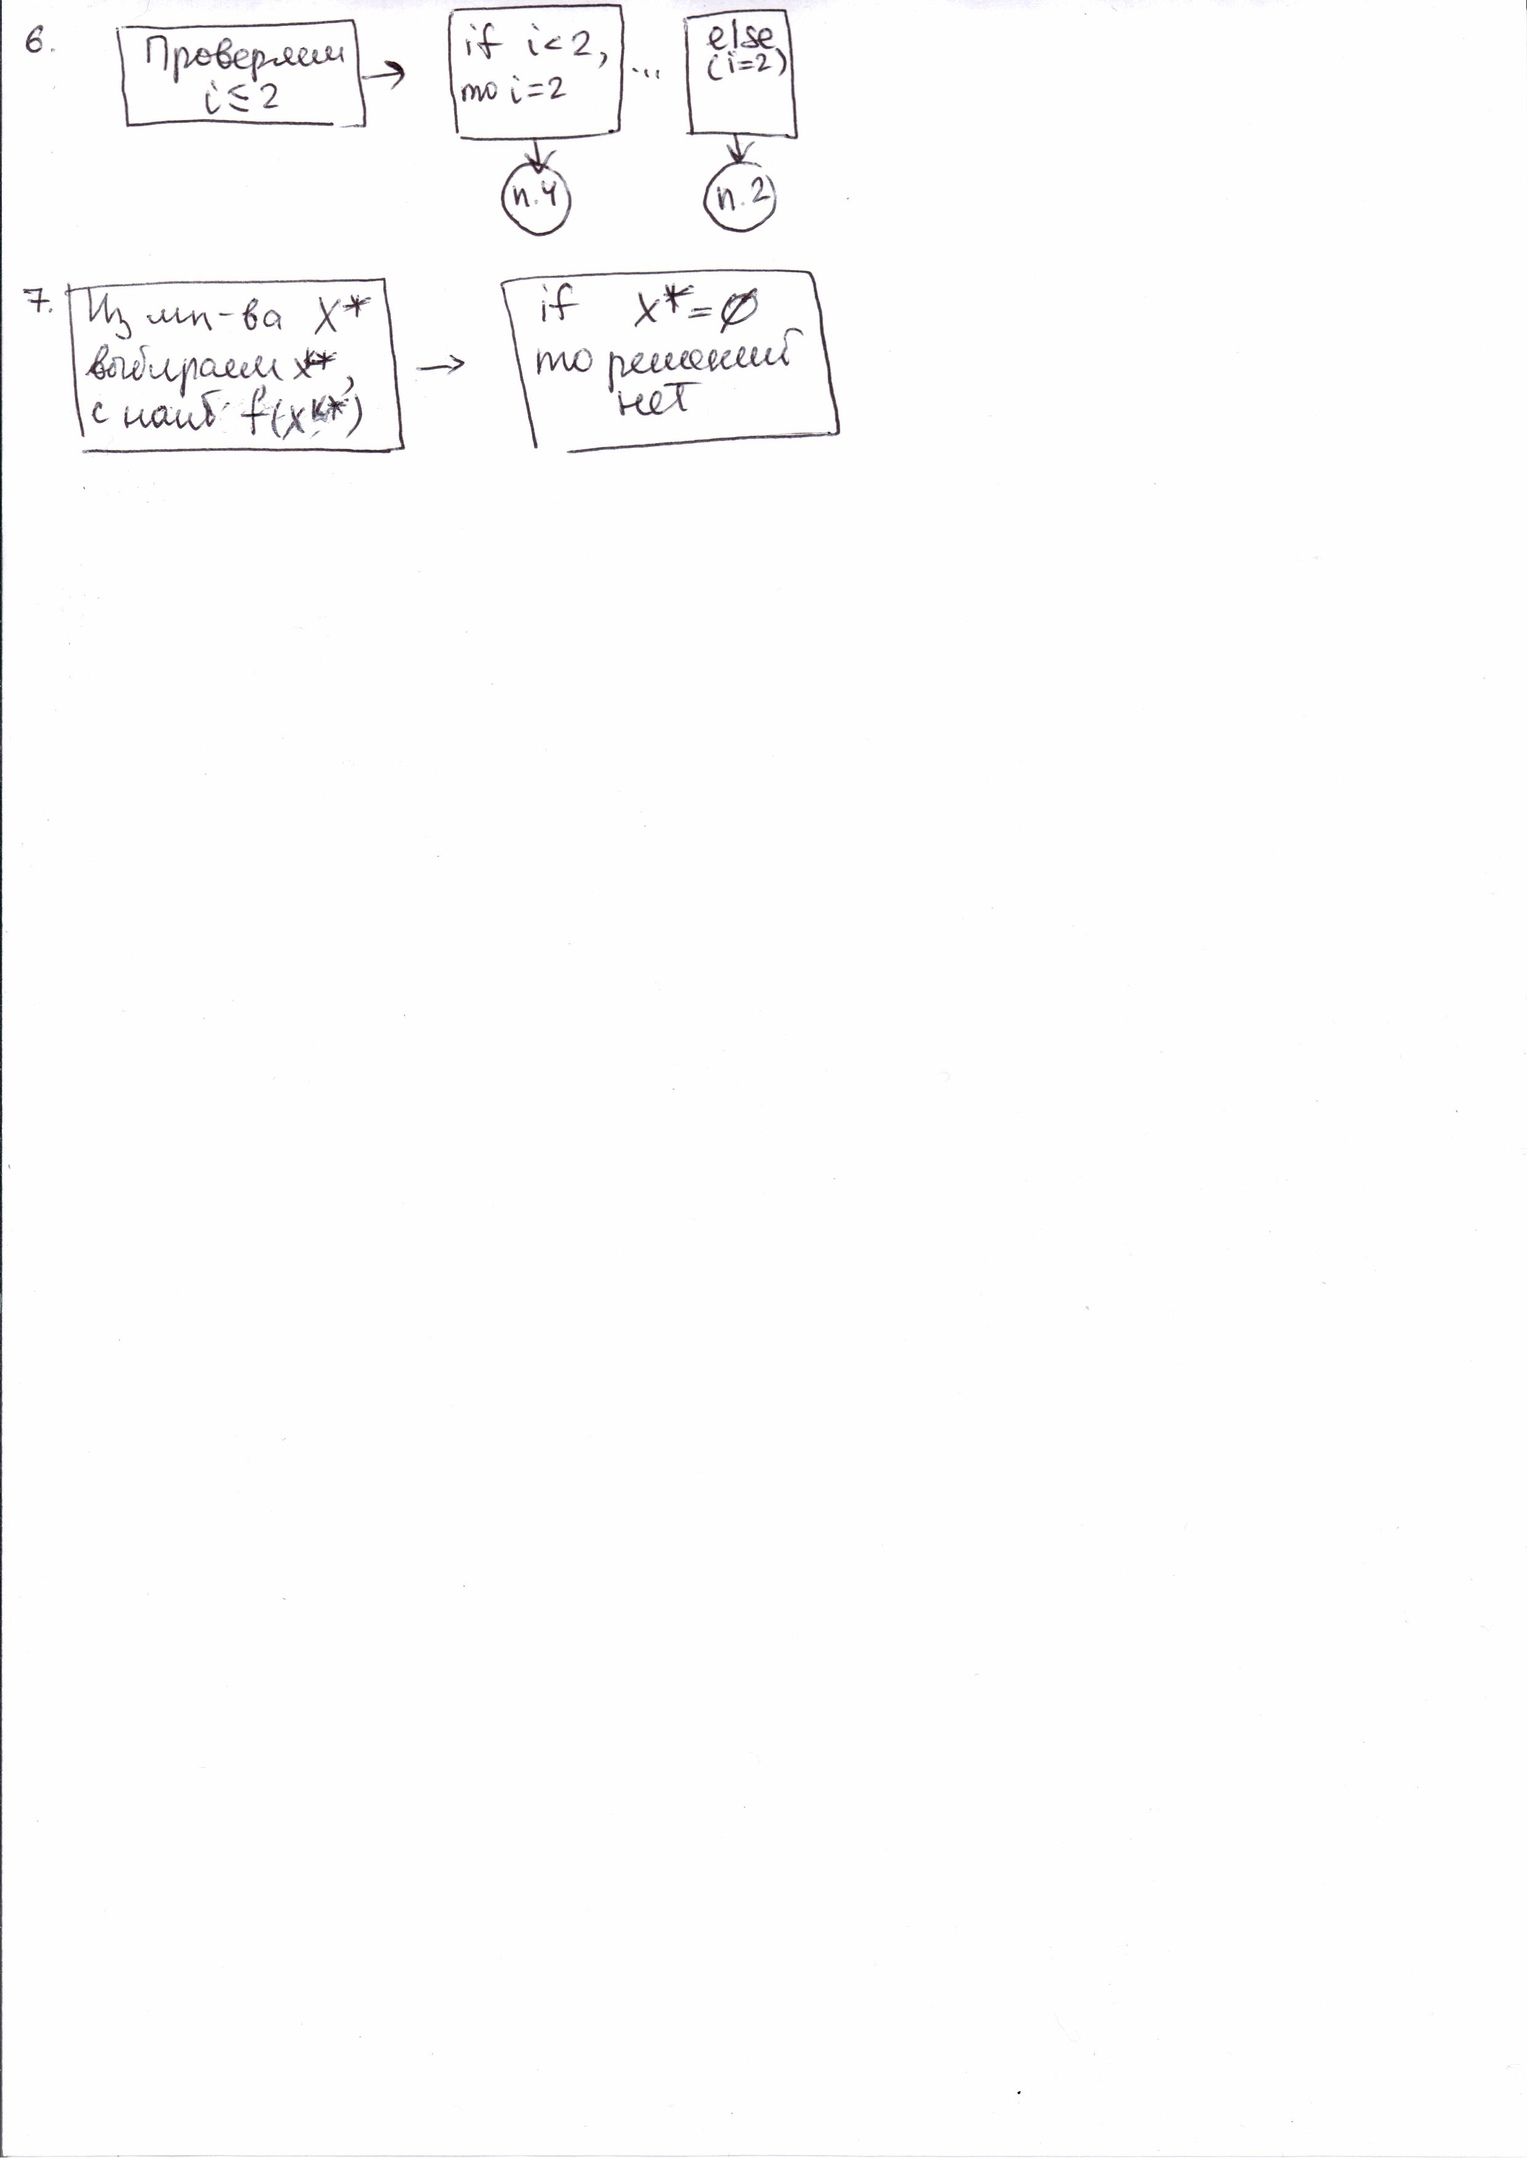 6.
Проверяем
i ≤ 2
if i < 2,
то i = 2
...
else
(i=2)
п.4
п.2
7.
Из мн-ва X*
выбираем x**,
с наиб f(x**)
if X* = ∅
то решений
нет